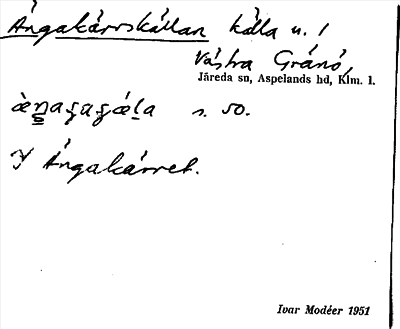 Ängakärrskällan källa u. l
Västra Gränö,
Järeda sn, Aspelands hd, Klm. l.
s. 50.
Ängakärret.
Ivar Modéer 1951